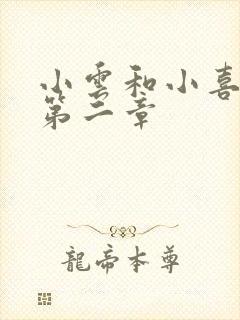 小雲和小喜
第二章
龍帝本尊